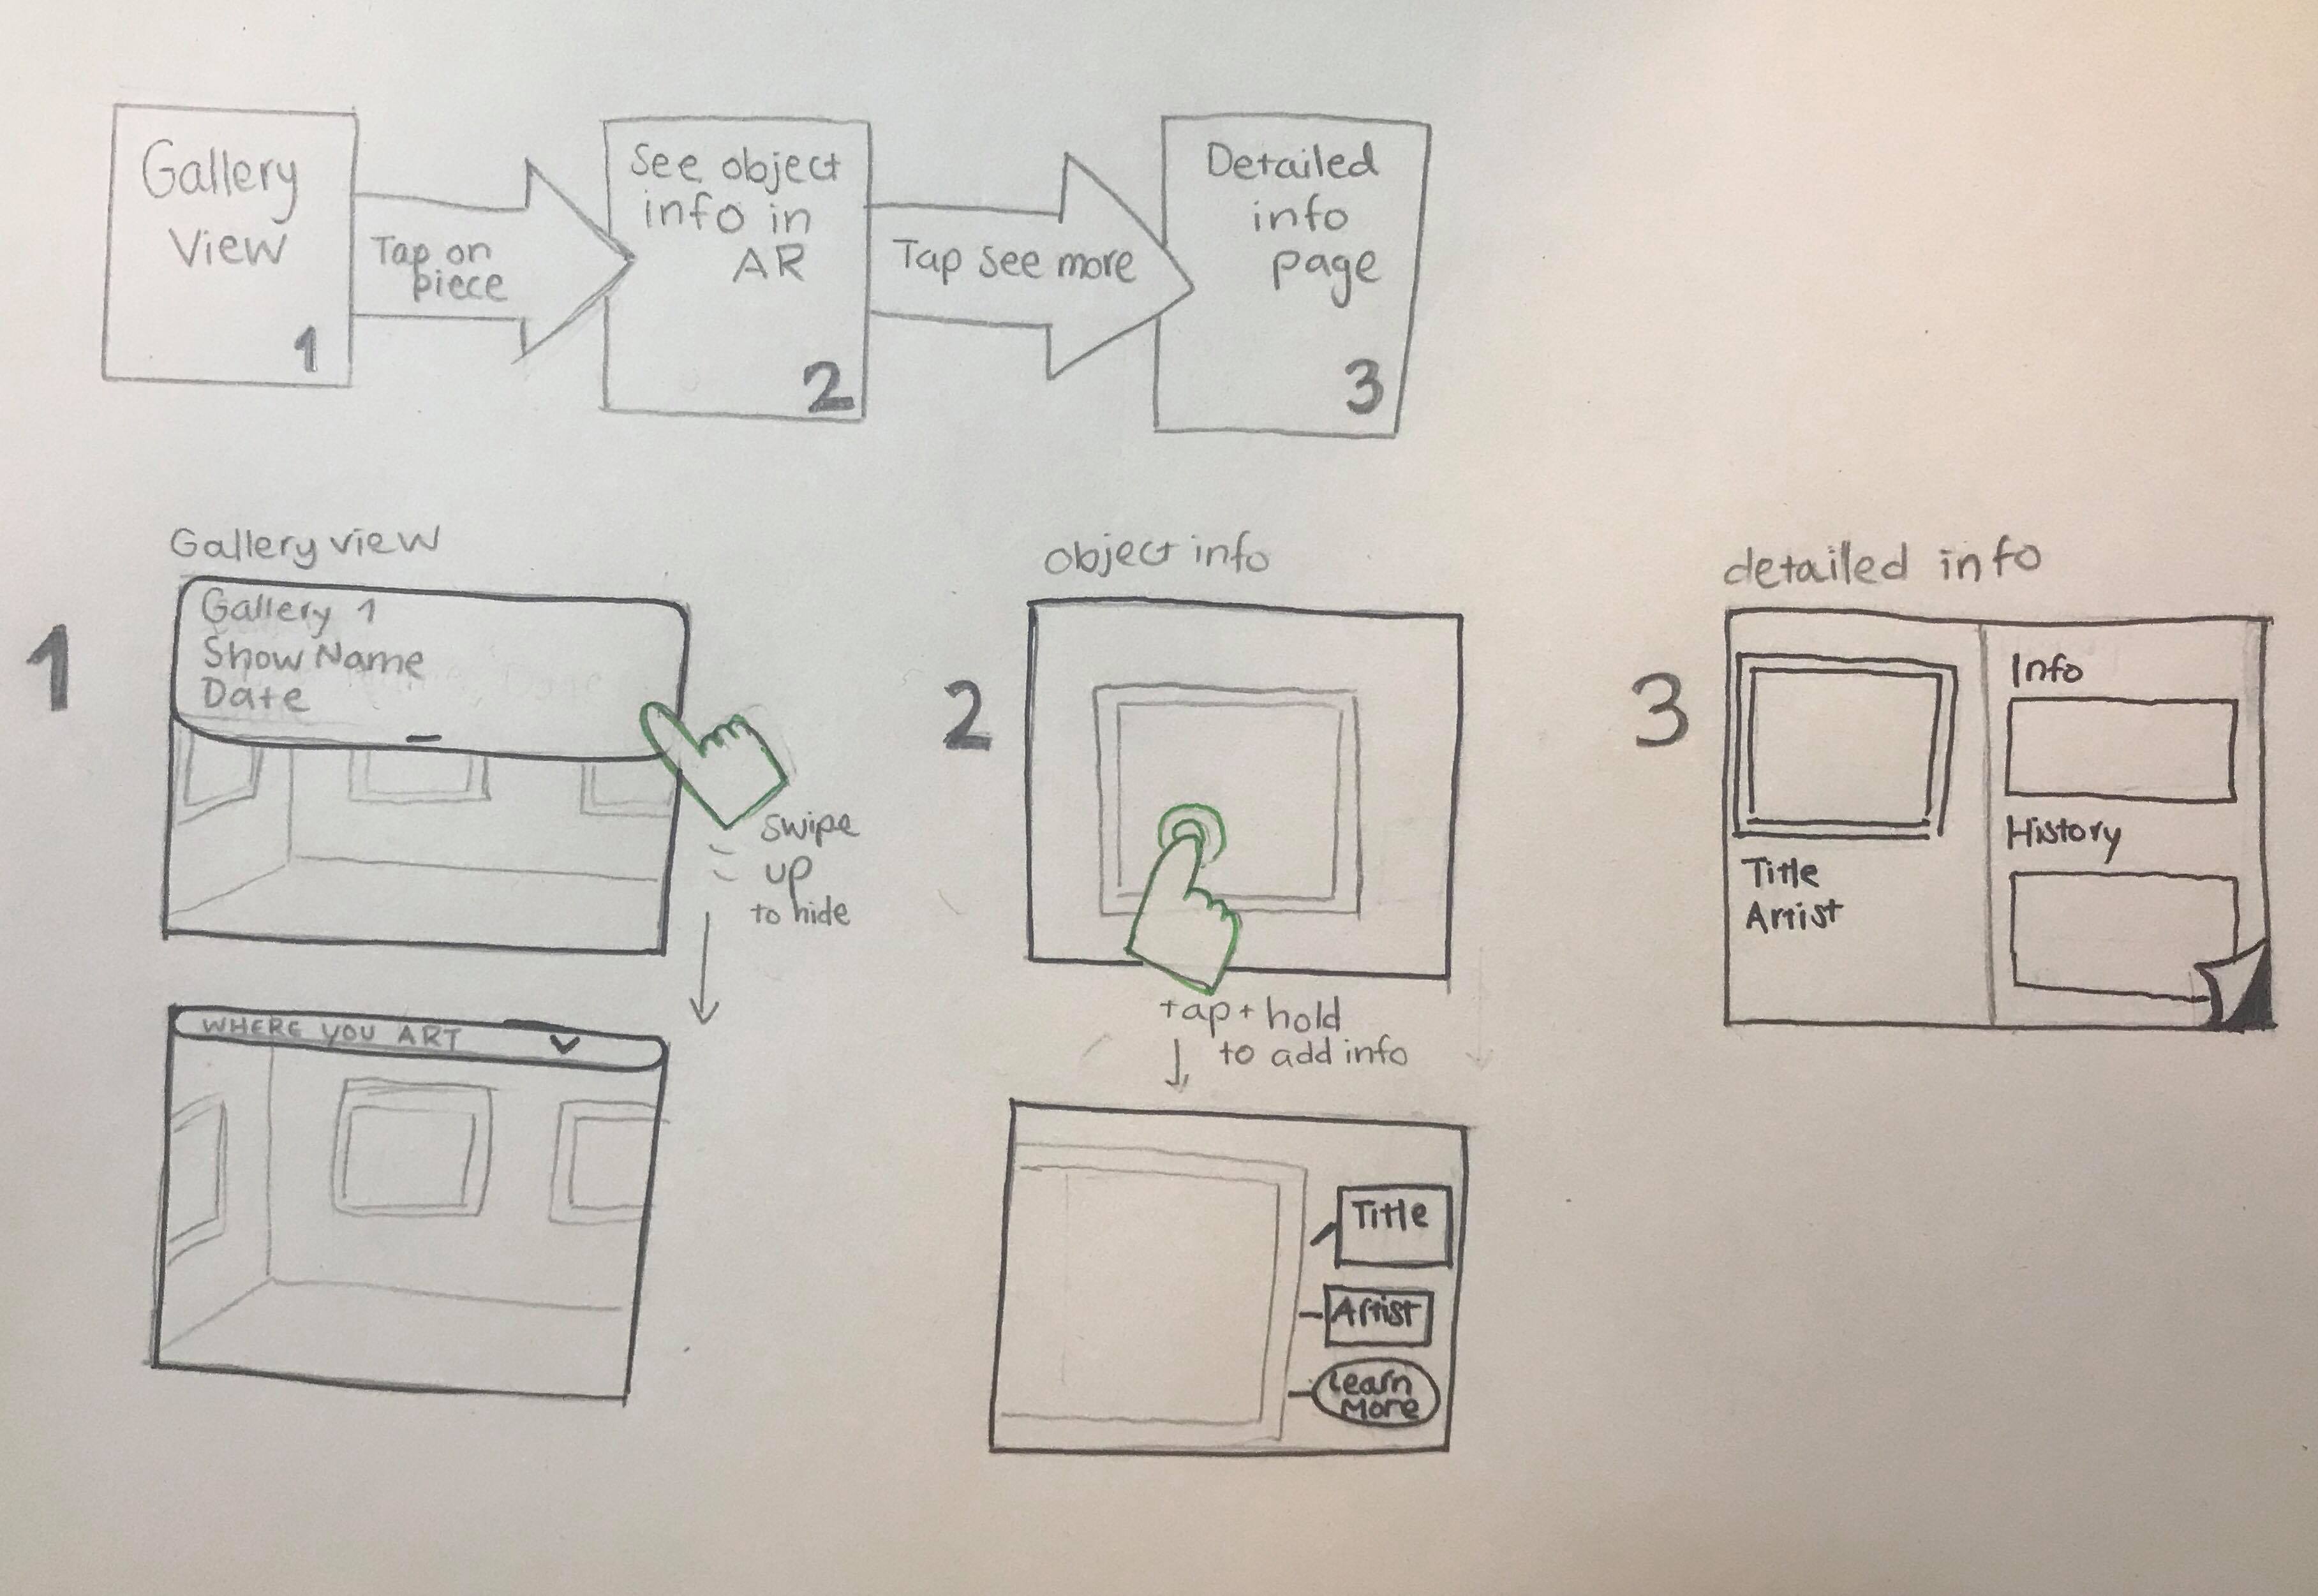 Gallery
View
1
Tap on
piece
See object
info in
AR
2
Tap See more
Detailed
info
page
3
Gallery view
1
Gallery 1
Show Name
Date
swipe
up
to hide
WHERE YOU ART
object info
2
tap + hold
to add info
Title
Artist
Learn
More
detailed info
3
Title
Artist
Info
History